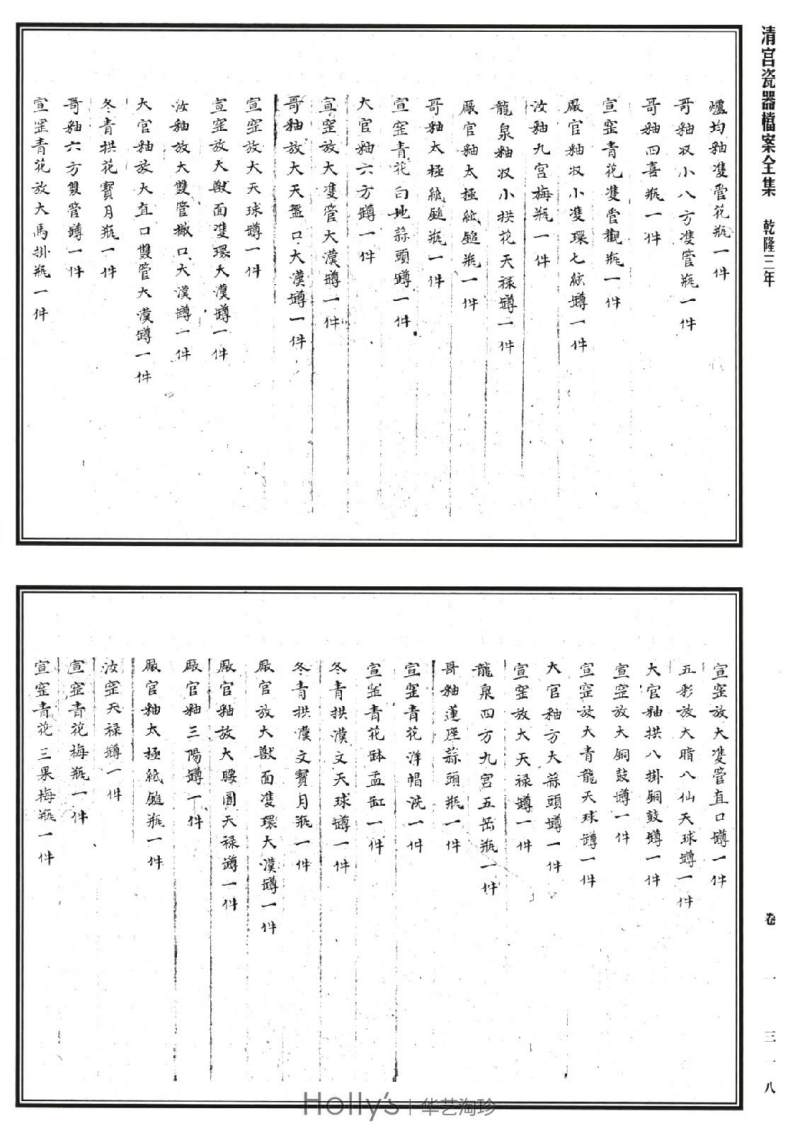 清宫瓷器檔案全集 乾隆三年
爐均釉䨇管花瓶一件
哥釉収小八方䨇管瓶一件
哥釉四喜瓶一件
宣窑青花䨇管觀瓶一件
厰官釉収小䨇環七絃罇一件
汝釉九宫梅瓶一件
龍泉釉収小拱花天禄罇一件
厰官釉太極紙鎚瓶一件
哥釉太極紙鎚瓶一件
宣窑青花白地蒜頭罇一件
大官釉六方罇一件
宣窑放大䨇管大漢罇一件
哥釉放大天盤口大漢罇一件
宣窑放大天球罇一件
宣窑放大獸面䨇環大漢罇一件
汝釉放大雙管撇口大漢罇一件
大官釉放大直口雙管大漢罇一件
冬青拱花寳月瓶一件
哥釉六方雙管罇一件
宣窑青花放大馬掛瓶一件
宣窑放大䨇管直口罇一件
五彩放大脂八仙天球罇一件
大官釉拱八掛銅鼓罇一件
宣窑放大銅鼓罇一件
宣窑放大青龍天球罇一件
大官釉方大蒜頭罇一件
宣窑放大天禄罇一件
龍泉四方九宫五岳瓶一件
哥釉蓮座蒜頭瓶一件
宣窑青花洋帽洗一件
宣窑青花缽盂缸一件
冬青拱漢文天球罇一件
冬青拱漢文寳月瓶一件
厰官放大獸面䨇環大漢罇一件
厰官釉放大腰圓天禄罇一件
厰官釉三陽罇一件
厰官釉太極紙鎚瓶一件
汝窑天禄罇一件
宣窑青花梅瓶一件
宣窑青花三果梅瓶一件
卷一 三一八
Holly's | 华艺淘珍